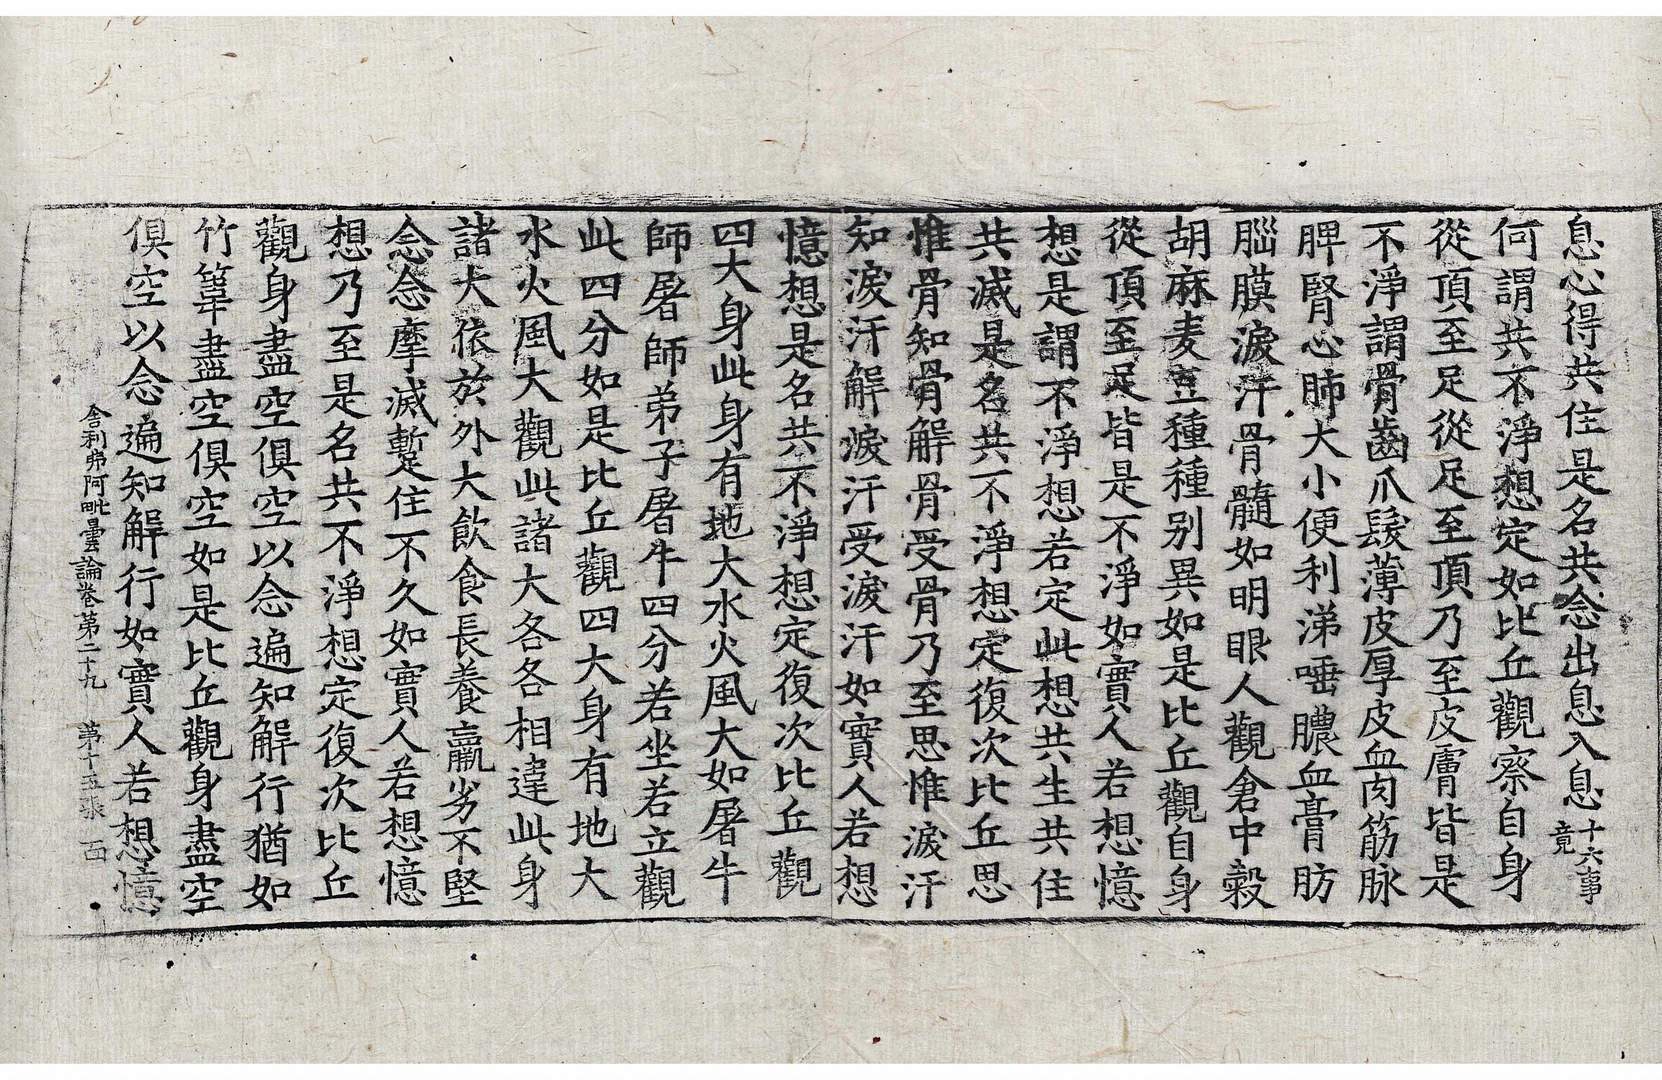 息心得共住是名共念出息入息十六事竟
何謂共不淨想定如比丘觀察自身
從頂至足從足至頂乃至皮膚皆是
不淨謂骨齒爪髮薄皮厚皮血肉筋脉
脾腎心肺大小便利涕唾膿血膏肪
腦膜淚汗骨髓如明眼人觀倉中穀
胡麻麦豆種種别異如是比丘觀自身
從頂至足皆是不淨如實人若想憶
想是謂不淨想若定此想共生共住
共滅是名共不淨想定復次比丘思
惟骨知骨解骨受骨乃至思惟淚汗
知淚汗解淚汗受淚汗如實人若想
憶想是名共不淨想定復次比丘觀
四大身此身有地大水火風大如屠牛
師屠師弟子屠牛四分若坐若立觀
此四分如是比丘觀四大身有地大
水火風大觀此諸大各各相違此身
諸大依於外大飲食長養羸劣不堅
念念摩滅暫住不久如實人若想憶
想乃至是名共不淨想定復次比丘
觀身盡空俱空以念遍知解行猶如
竹葦盡空俱空如是比丘觀身盡空
俱空以念遍知解行如實人若想憶
舍利弗阿毗曇論卷第二十九 第十五張 西